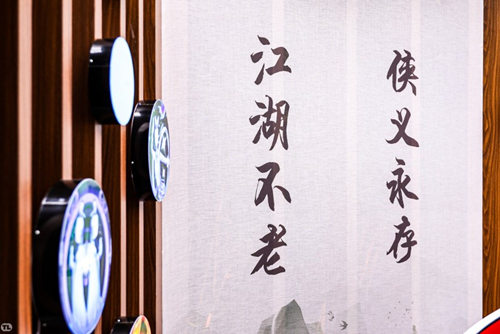 侠义永存
江湖不老